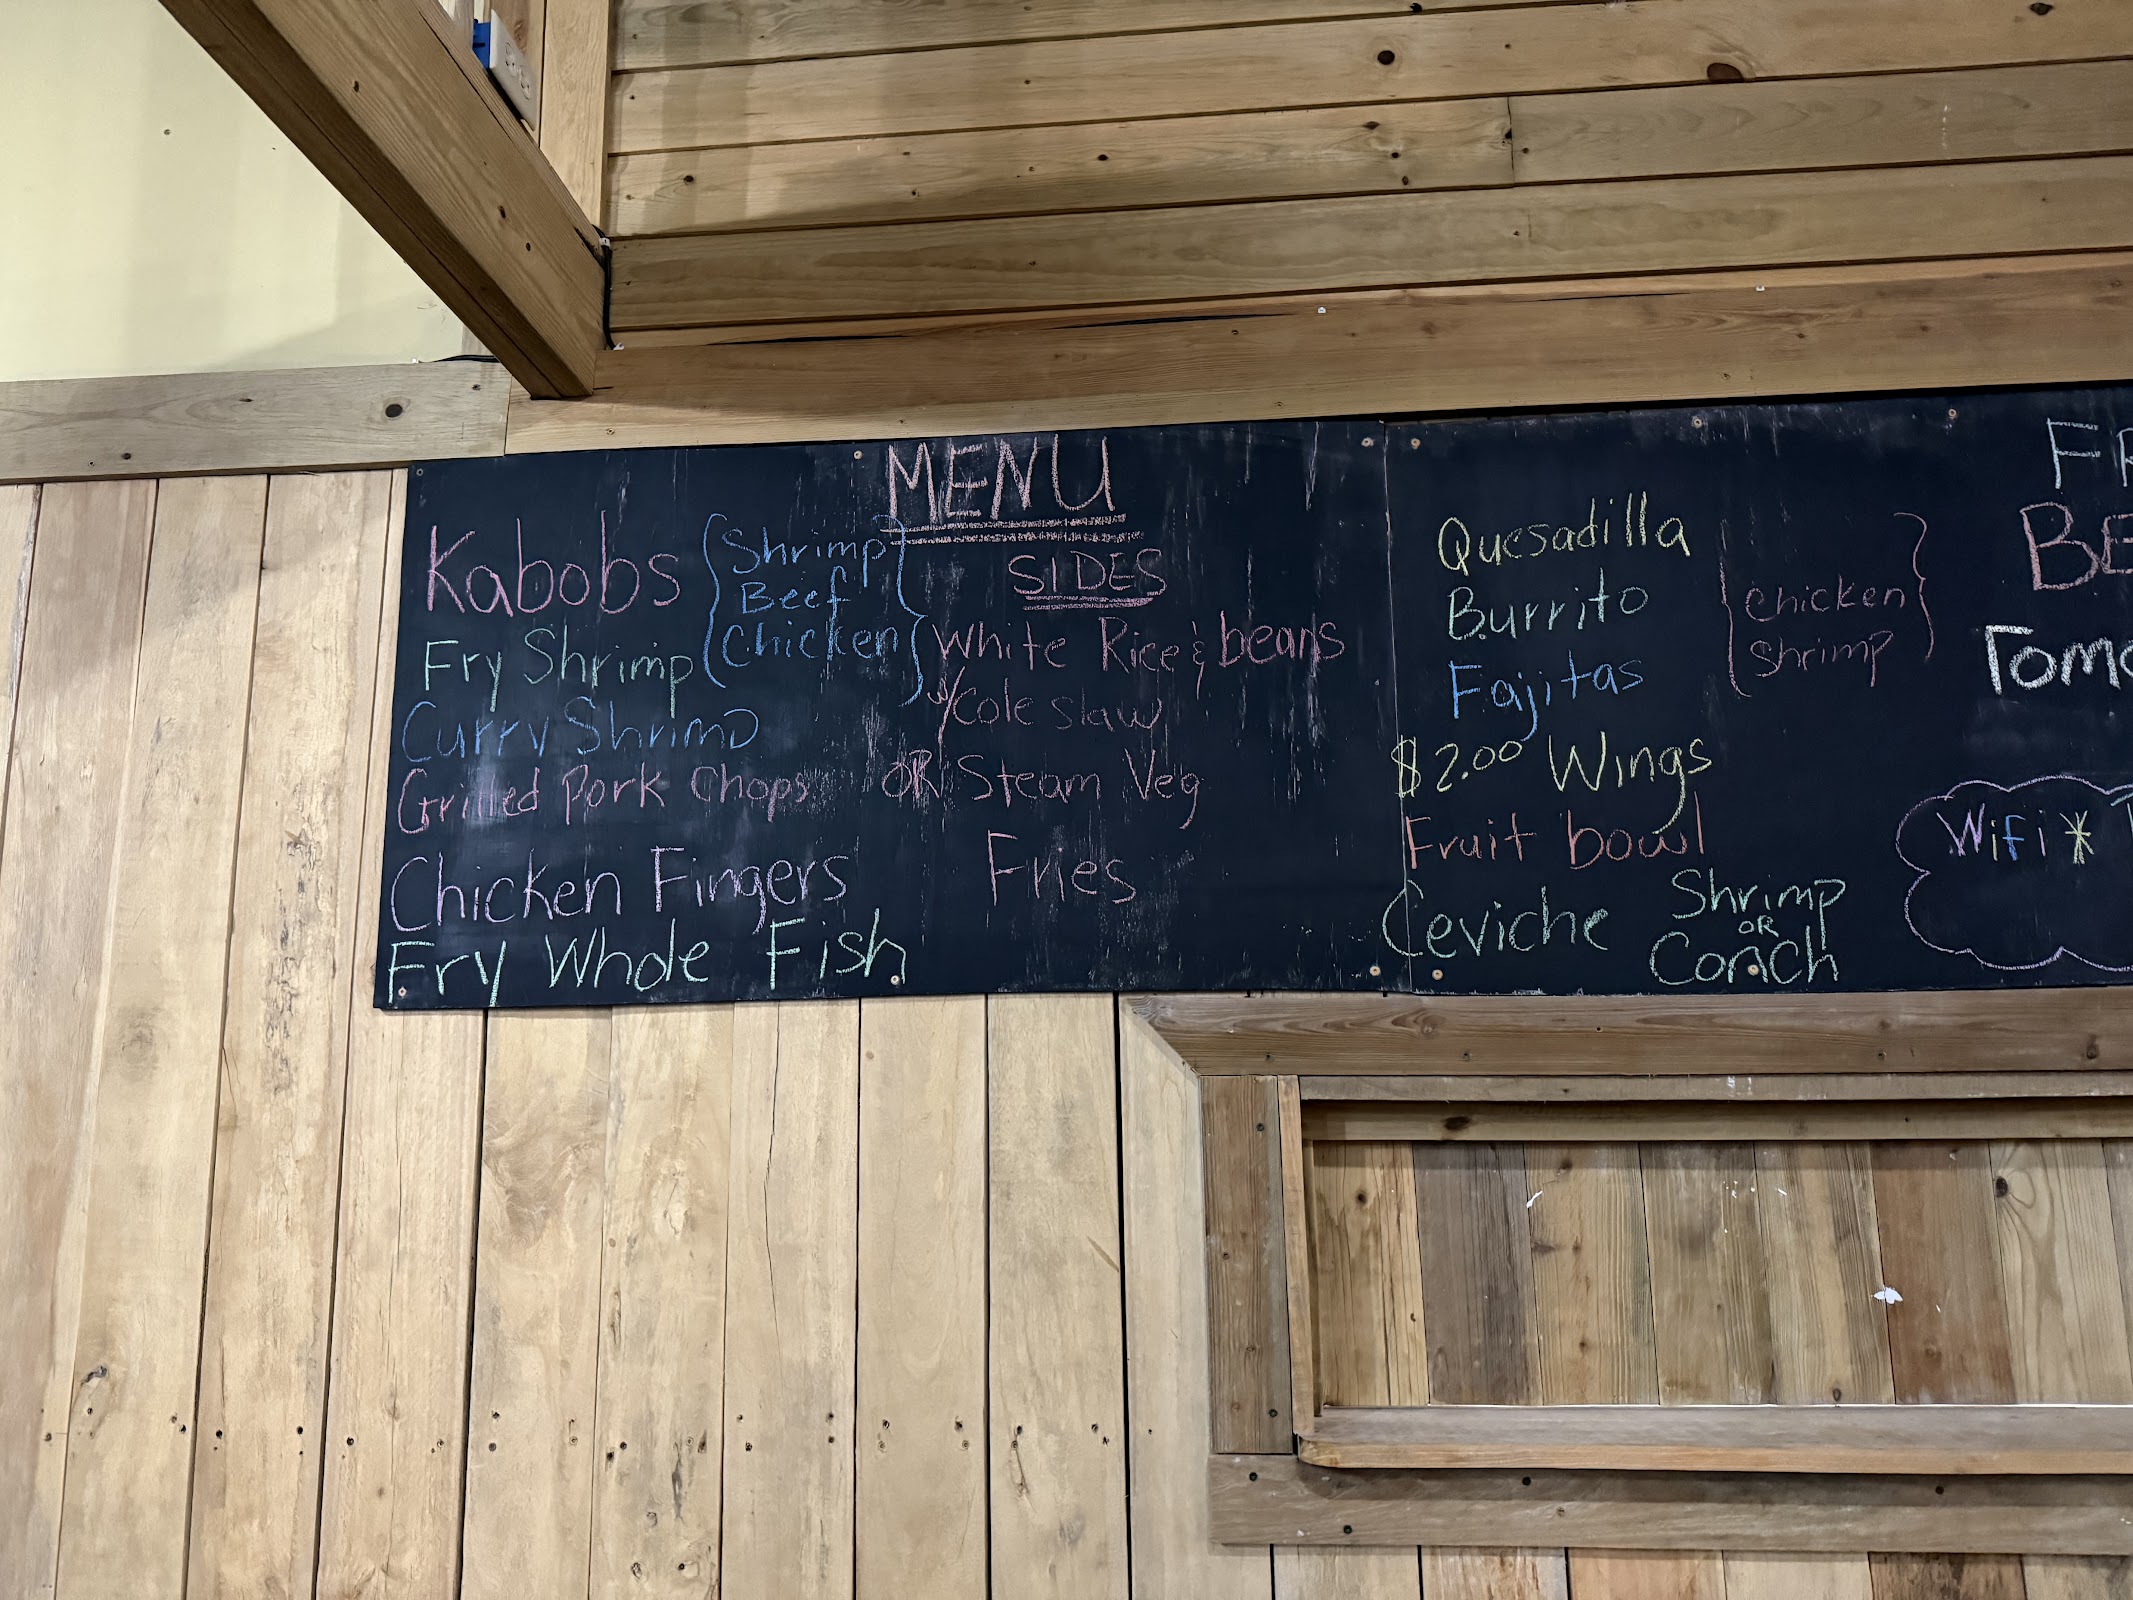 MENU
Kabobs
Shrimp
Beef
Chicken
Fry Shrimp
Curry Shrimp
Grilled Pork Chops
Chicken Fingers
Fry Whole Fish
SIDES
White Rice & beans
w/ Cole slaw
OR Steam Veg
Fries
Quesadilla
Burrito
Fajitas
Chicken
Shrimp
$2.00 Wings
Fruit bowl
Ceviche Shrimp
OR
Conch
Wifi *